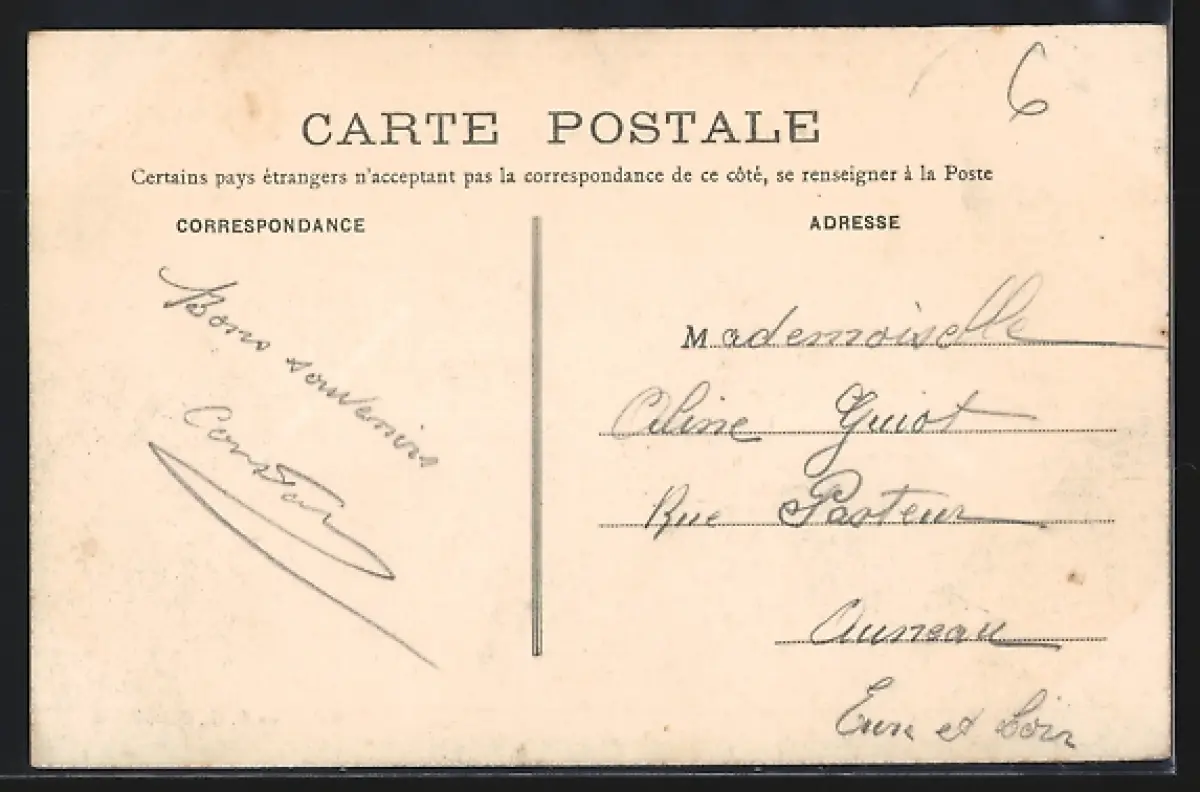 6
CARTE POSTALE
Certains pays étrangers n'acceptant pas la correspondance de ce côté, se renseigner à la Poste
CORRESPONDANCE
Bons souvenirs
ADRESSE
Mademoiselle
Céline Guiot
Rue Pasteur
Auneau
Eure et Loir